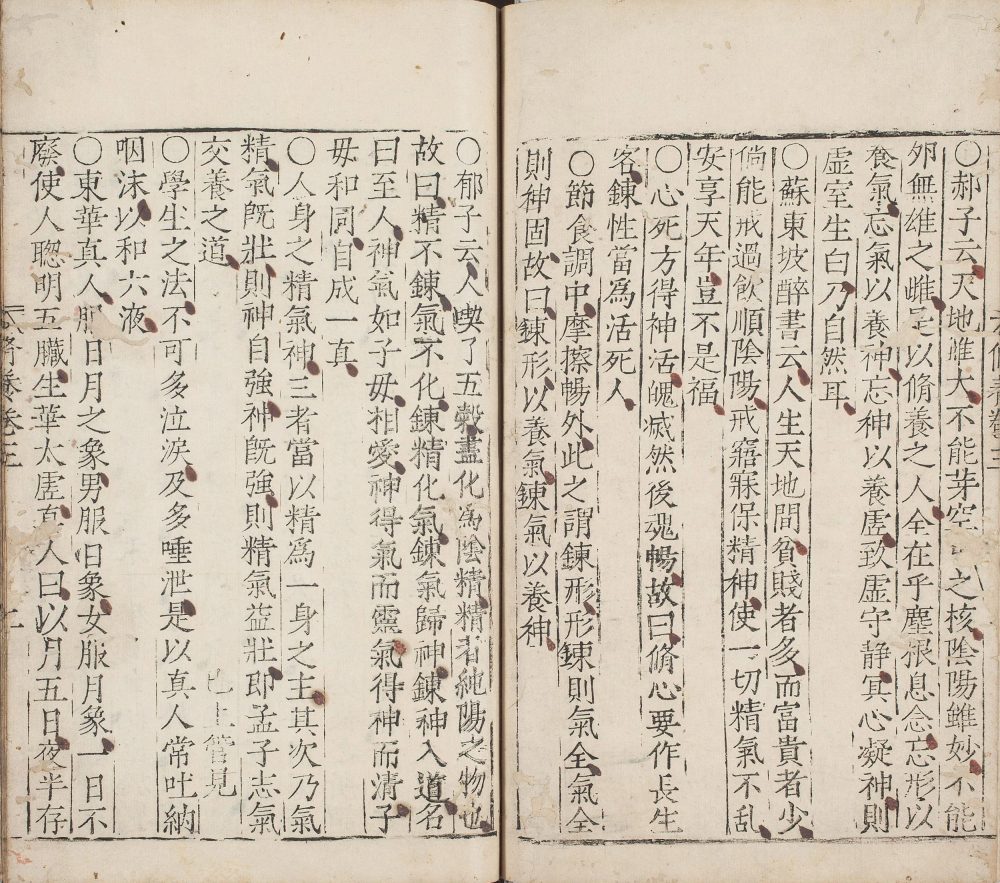 ○郝子云天地雖大不能芽空之核陰陽雖妙不能
卵無雄之雌是以脩養之人全在乎塵根息念忘形以
養氣忘氣以養神忘神以養虛致虛守静冥心凝神則
虛室生白乃自然耳
○蘇東坡醉書云人生天地間貧賤者多而富貴者少
倘能戒過飲順陰陽戒寤寐保精神使一切精氣不乱
安享天年豈不是福
○心死方得神活魄滅然後魂暢故曰脩心要作長生
客鍊性當爲活死人
○節食調中摩擦暢外此之謂鍊形形鍊則氣全氣全
則神固故曰鍊形以養氣鍊氣以養神
○郁子云人喫了五穀盡化爲陰精精者純陽之物也
故曰精不鍊氣不化鍊精化氣鍊氣歸神鍊神入道名
曰至人神氣如子毋相愛神得氣而靈氣得神而清子
毋和同自成一真
○人身之精氣神三者當以精爲一身之主其次乃氣
精氣既壯則神自強神既強則精氣益壯即孟子志氣
交養之道 已上管見
○學生之法不可多泣涙及多唾泄是以真人常吐納
咽沫以和六液
○東華真人服日月之象男服日象女服月象一日不
廢使人聰明五臟生華太虛真人曰以月五日夜半存
養卷三